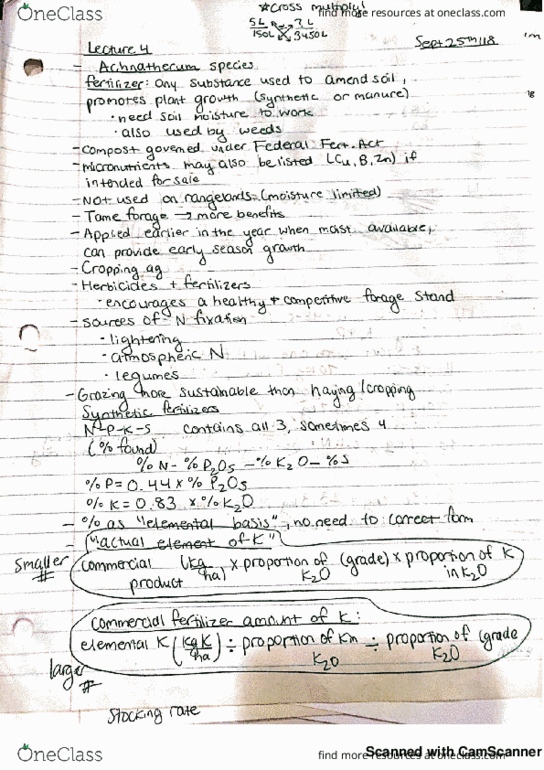 ☆Cross multiply!
OneClass
find more resources at oneclass.com
5L 7L
150L 3450L
Lecture 4
Sept 25th/18
- Achnatherum species
fertilizer: any substance used to amend soil,
promotes plant growth (synthetic or manure)
• need soil moisture to work
• also used by weeds
- compost governed under Federal Fert. Act
- micronutrients may also be listed (Cu, B, Zn) if
intended for sale
- NOT used on rangelands (moisture limited)
- Tame forage → more benefits
- Applied earlier in the year when moist available,
can provide early season growth
- Cropping ag
- Herbicides + fertilizers
• encourages a healthy + competitive forage stand
- sources of N fixation
• lightering
• atmospheric N
• legumes
- Grazing more sustainable than haying/cropping
Synthetic fertilizers
N-P-K-S contains all 3, sometimes 4
(% found)
% N - % P2O5 - % K2O - % S
% P = 0.44 x % P2O5
% K = 0.83 x % K2O
- % as "elemental basis", no need to correct form
- "actual element of K"
smaller #
commercial product (kg/ha) x proportion of (grade) K2O x proportion of K in K2O
commercial fertilizer amount of K:
elemental K (kg K/ha) ÷ proportion of Km K2O ÷ proportion of (grade K2O
larger #
Stocking rate
OneClass
find more resources at oneclass.com
Scanned with CamScanner